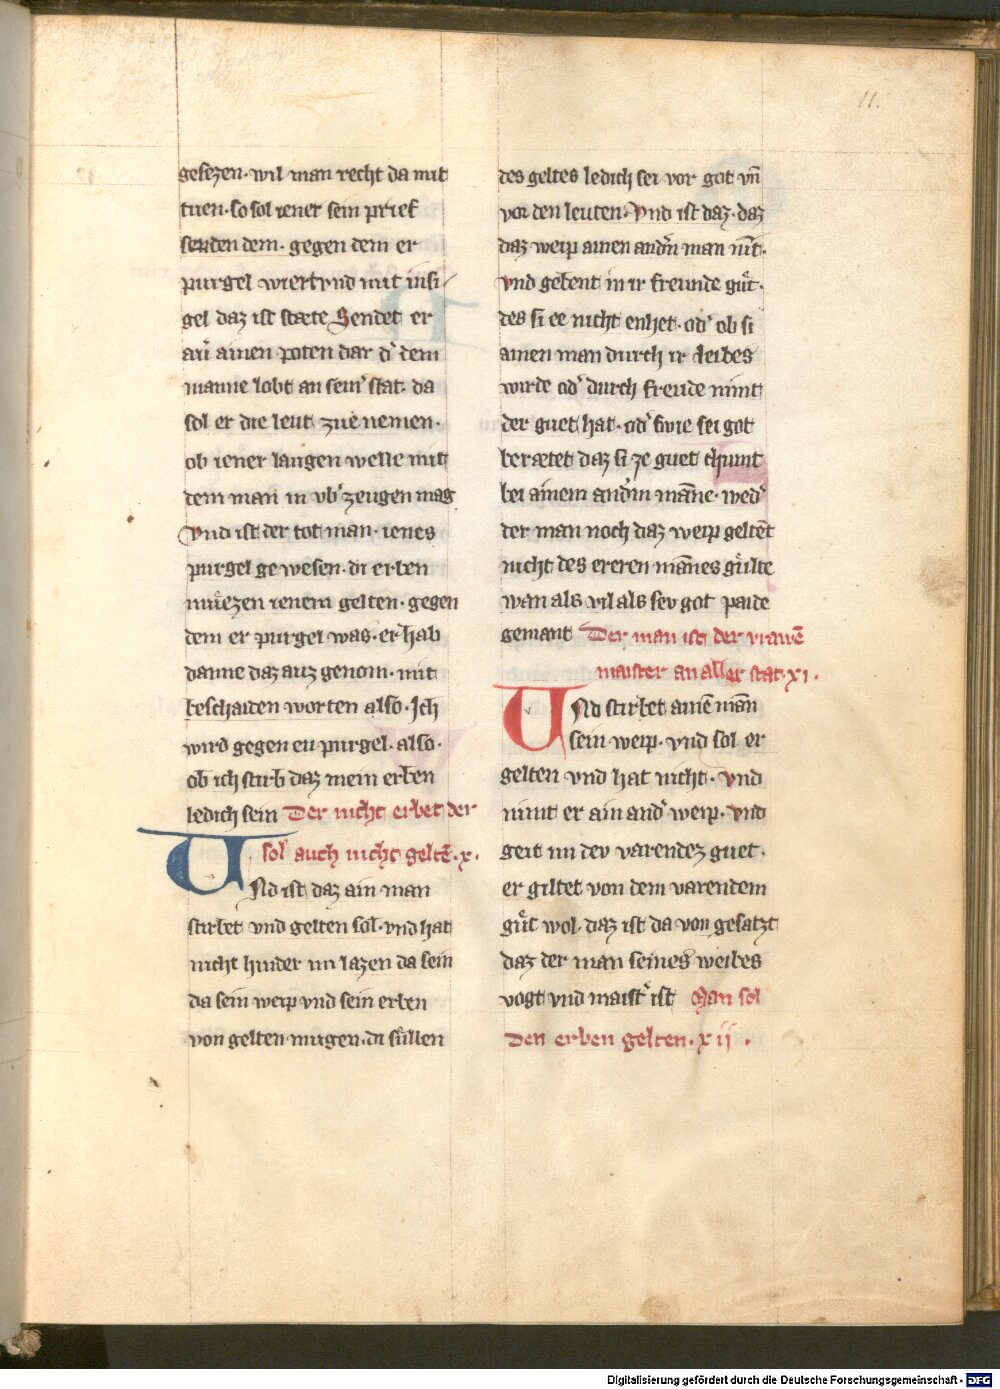 11.
gesezen. wil man recht da mit
tuen. so sol iener sein prief
senden dem. gegen dem er
purgel wiert vnd mit insi
gel daz ist stæte Sendet er
auͤ ainen poten dar dˀ dem
manne lobt an seinˀ stat. da
sol er die leut zue nemen.
ob iener laugen welle mit
dem man in vbˀzeugen mag
Vnd ist der tot man. ienes
purgel gewesen. di erben
muͤezen ienem gelten. gegen
dem er purgel was. er hab
danne daz auz genom. mit
beschaiden worten also. Ich
wird gegen eu purgel. also.
ob ich stirb daz mein erben
ledich sein Der nicht erbet der
sol auch nicht geltē. x.
VNd ist daz ain man
stirbet vnd gelten sol. vnd hat
nicht hinder im lazen da sein
da sein weip vnd sein erben
von gelten mugen. di suͤllen
des geltes ledich sei vor got vn̄
vor den leuten. Vnd ist daz. daz
daz weip ainen andˀn man nīt.
vnd gebent in ir freunde guͤt.
des si ee nicht enhet. odˀ ob si
ainen man durch ir leibes
wirde odˀ durch freude nimt
der guet hat. odˀ swie sei got
berætet daz si ze guet chumt
bei ainem andˀm māne. wedˀ
der man noch daz weip geltēt
nicht des ereren mānes guͤlte
wan als vil als sev got paide
gemant Der man ist der vrawē
maister an aller stat. xi.
VNd stirbet ainē mān
sein weip. vnd sol er
gelten vnd hat nicht. vnd
nimt er ain andˀ weip. vnd
geit im dev varendez guet.
er giltet von dem varendem
guͤt wol. daz ist da von gesatzt
daz der man seines weibes
vogt vnd maistˀ ist Man sol
den erben gelten. xii.
Digitalisierung gefördert durch die Deutsche Forschungsgemeinschaft - DFG